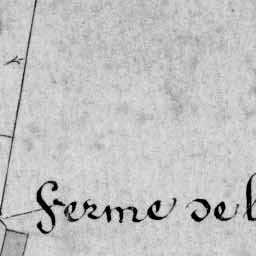 ferme de l